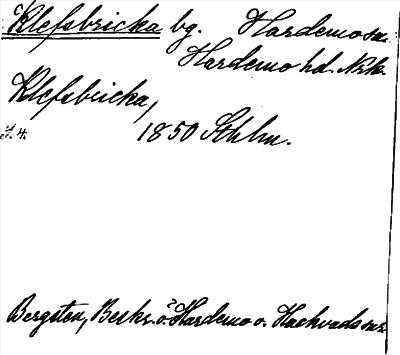 Klefsbricka bg. Hardemo sn.
Hardemo hd. Nrk.
Klefsbricka,
J. 4. 1850 Sthlm.
Bergsten, Beskr. ö. Hardemo o. Hackvads snr